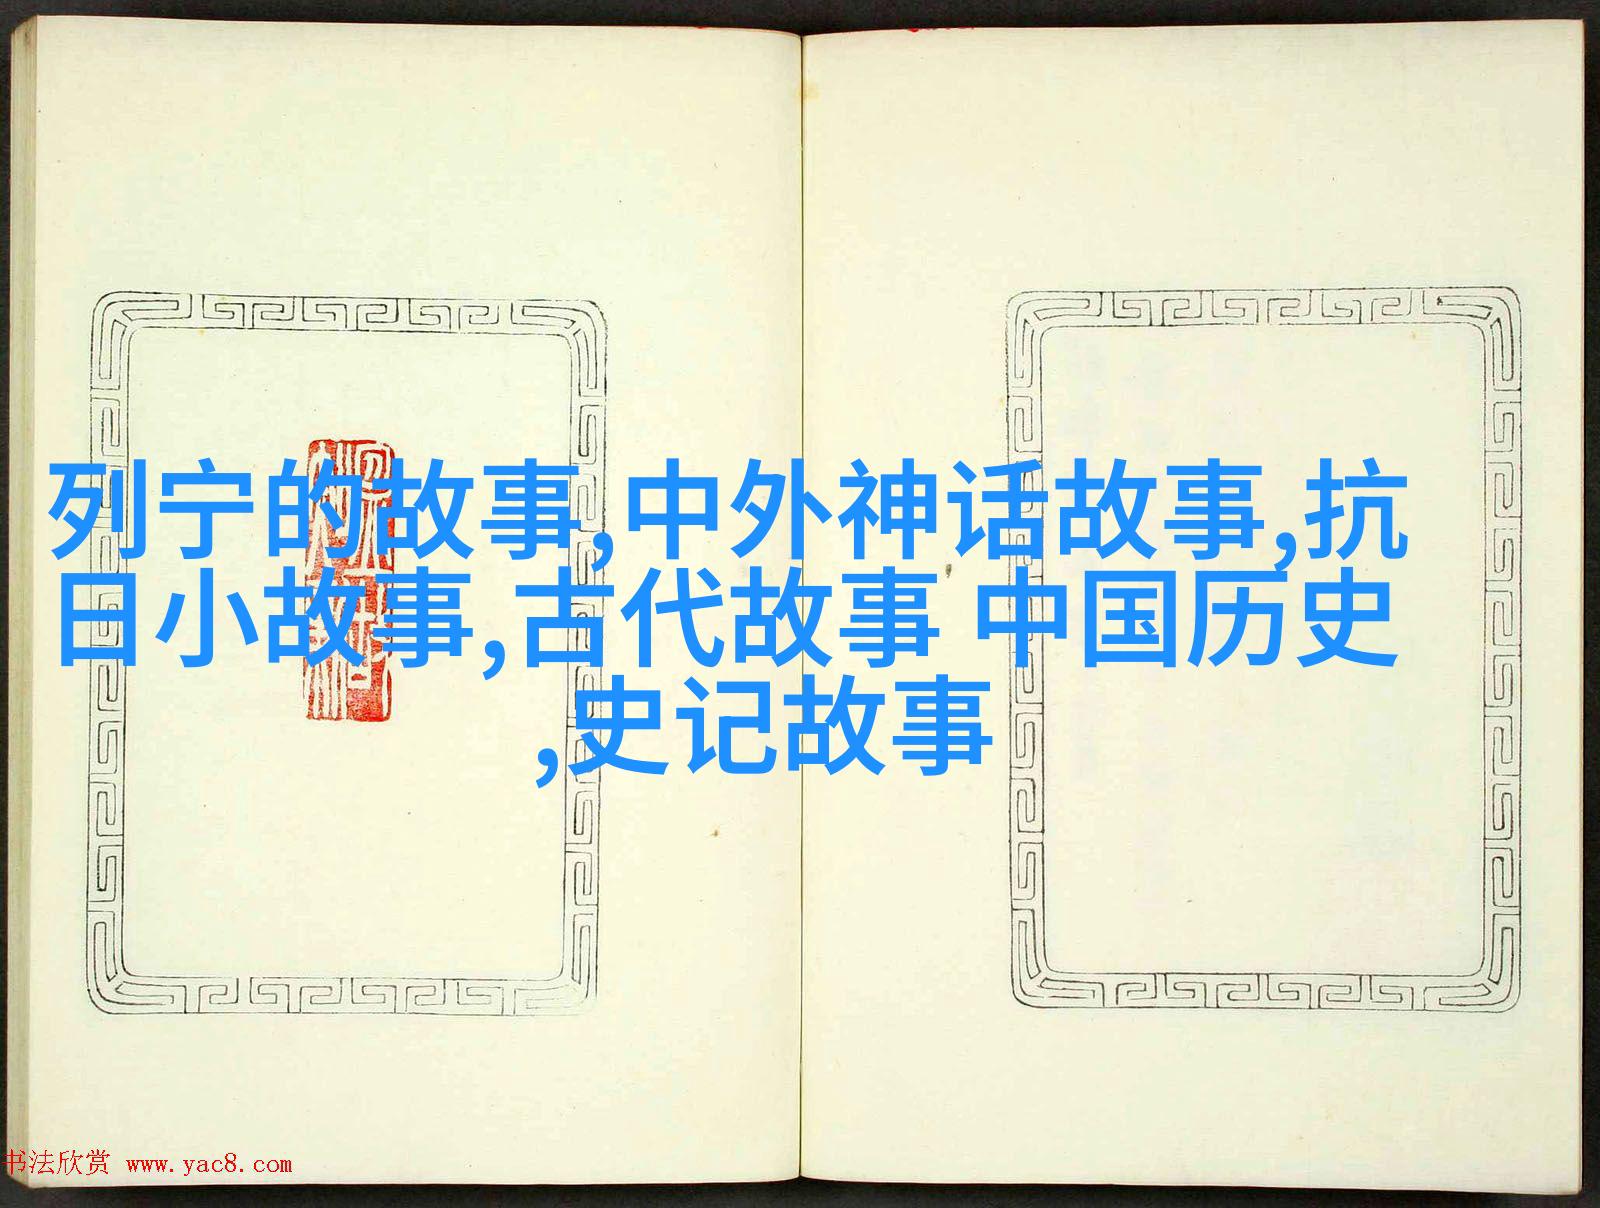 列宁的故事,中外神话故事,抗
日小故事,古代故事 中国历史
,史记故事
书法欣赏 www.yac8.com